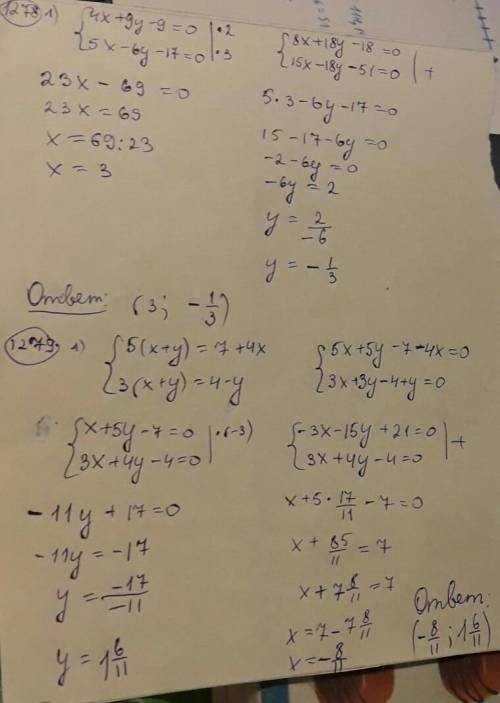 1278 1) { 4x+9y-9=0 |·2
5x-6y-17=0 |·3
{ 8x+18y-18=0
15x-18y-51=0 | +
23x-69=0
23x=69
x=69:23
x=3
5·3-6y-17=0
15-17-6y=0
-2-6y=0
-6y=2
y=2/-6
y=-1/3
Ответ: (3; -1/3)
1279. 1) { 5(x+y)=7+4x
3(x+y)=4-y
{ 5x+5y-7-4x=0
3x+3y-4+y=0
{ x+5y-7=0 |·(-3)
3x+4y-4=0
{ -3x-15y+21=0
3x+4y-4=0 | +
-11y+17=0
-11y=-17
y=-17/-11
y=1 6/11
x+5·17/11-7=0
x+85/11=7
x+7 8/11=7
x=7-7 8/11
x=-8/11
Ответ:
(-8/11; 1 6/11)